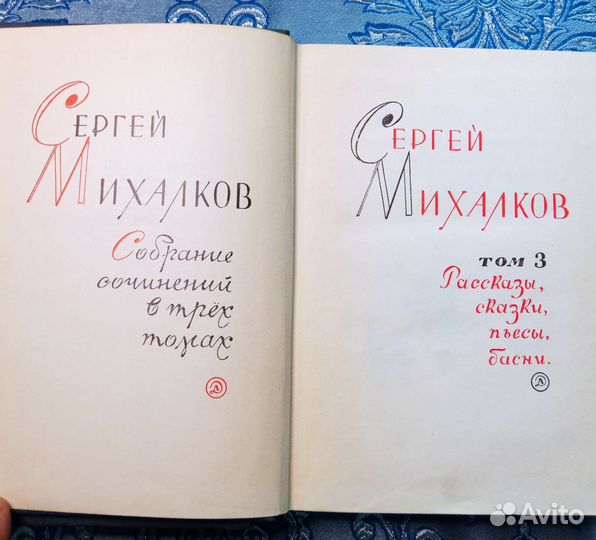 Сергей
Михалков
Собрание
сочинений
в трёх
томах
Д
Сергей
Михалков
том 3
Рассказы,
сказки,
пьесы,
басни.
Д
Avito